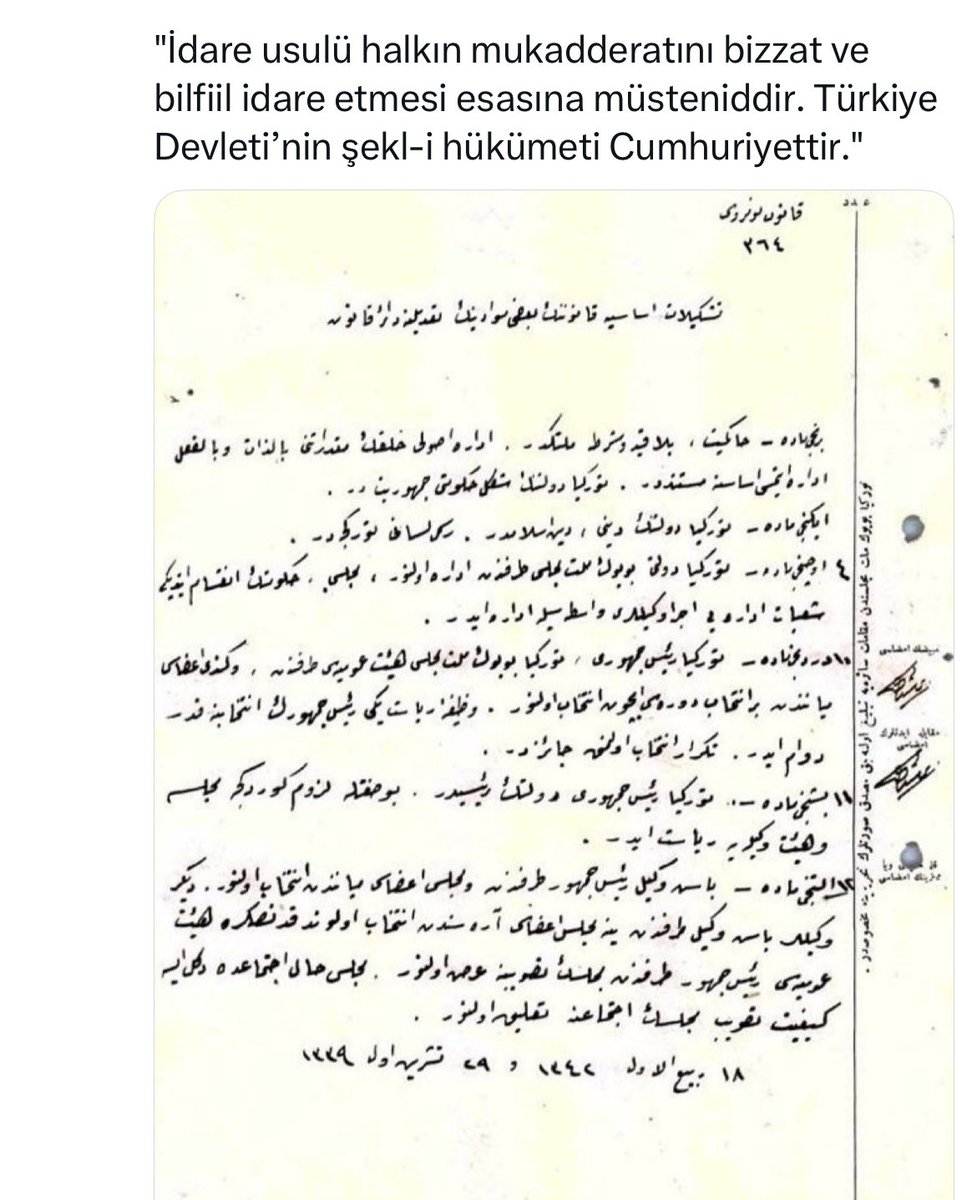 "İdare usulü halkın mukadderatını bizzat ve
bilfiil idare etmesi esasına müsteniddir. Türkiye
Devleti’nin şekl-i hükümeti Cumhuriyettir."
عدد
قانون نومروسى
٣٦٤
تشكيلات اساسيه قانوننك بعض موادينك تعديلنه دائر قانون
برنجى ماده – حاكميت، بلا قيد و شرط ملتكدر. اداره اصولى خلقك مقدراتنى بالذات و بالفعل
اداره ايتمسى اساسنه مستنددر. توركيا دولتنك شكل حكومتى جمهوريتدر.
ايكنجى ماده – توركيا دولتنك دينى، دين اسلامدر. رسمى لسانى توركجه در.
٤ اوچنجى ماده – توركيا دولتى بويوك ملت مجلسى طرفندن اداره اولنور، مجلس، حكومتك انقسام ايتديكى
شعبات اداره يى اجرا وكيللرى واسطه سيله اداره ايدر.
١٠ دردنجى ماده – توركيا رئيس جمهورى، توركيا بويوك ملت مجلسى هيئت عموميه سى طرفندن، و كندى اعضاسى
ميانندن بر انتخاب دوره سى ايچون انتخاب اولنور. وظيفۀ رياست يكى رئيس جمهورك انتخابنه قدر
دوام ايدر. تكرار انتخاب اولنمق جائزدر.
١١ بشنجى ماده – توركيا رئيس جمهورى دولتك رئيسيدر. بو صفتله لزوم كوردكجه مجلسه
و هيئت وكيله يه رياست ايدر.
١٢ آلتنجى ماده – باش وكيل رئيس جمهور طرفندن و مجلس اعضاسى ميانندن انتخاب اولنور. ديكر
وكيللر باش وكيل طرفندن ينه مجلس اعضاسى آره سندن انتخاب اولوندقدنصكره هيئت
عموميه سى رئيس جمهور طرفندن مجلسك تصويبنه عرض اولنور. مجلس حال اجتماعده دكل ايسه
كيفيت تصويب مجلسك اجتماعنه تعليق اولنور.
١٨ ربيع الاول ١٣٤٢ و ٢٩ تشرين اول ١٣٣٩
توركيا بويوك ملت مجلسندن مقامات سائره يه تبليغ اوله جق مصدق صورتلرك تحريرينه مخصوصدر.
مبيضك امضاسى
مقابله ايدنلرك
امضاسى